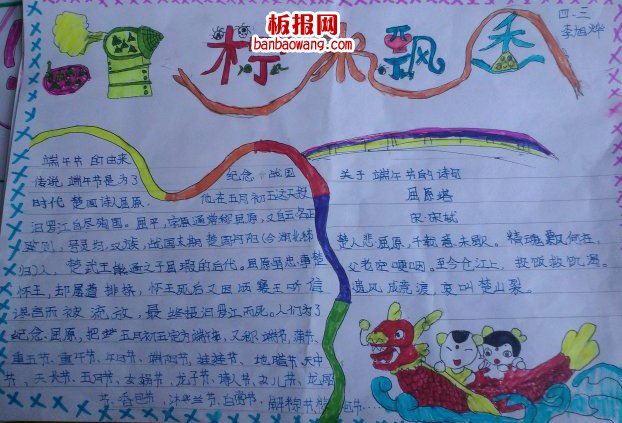 板报网
banbaowang.com
四.三
李旭烨
粽米飘香
端午节的由来
传说端午节是为了纪念战国
时代楚国诗人屈原，他在五月初五这天投
汨罗江自尽殉国。屈平，字原通常称屈原，又自云名正
则，号灵均，汉族，战国末期楚国丹阳(今湖北秭
归)人，楚武王熊通之子屈瑕的后代。屈原虽忠事楚
怀王，却屡遭排挤，怀王死后又因顷襄王听信
谗言而被流放，最终投汨罗江而死。人们为了
纪念屈原，把每五月初五定为端午，又称端节，蒲节、
重五节、重午节、午日节、端阳节、娃娃节、地腊节、天中
节、天长节、五月节、女娲节、龙子节、诗人节、女儿节、龙舟
节、香包节、沐兰节、
解粽节、
关于端午节的诗歌
屈原塔
宋·宋轼
楚人悲屈原，千载意未歇。精魂飘何在，
父老空哽咽。至今仓江上，投饭救饥渴。
遗风成竞渡，哀叫楚山裂。